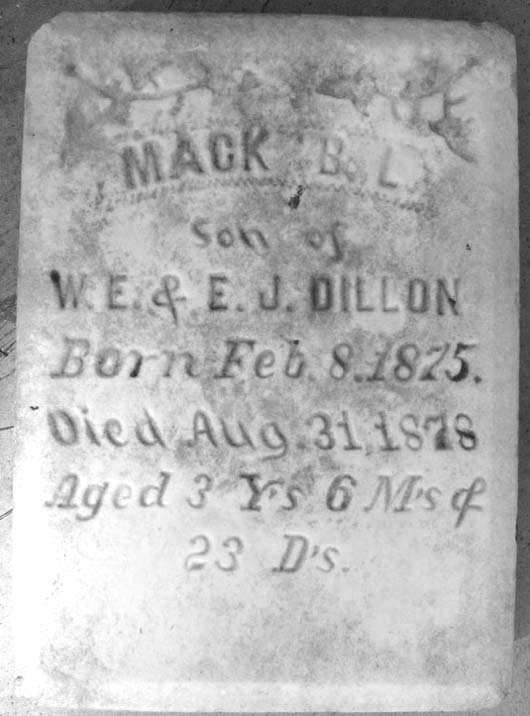 MACK B. L.
Son of
W. E. & E. J. DILLON
Born Feb. 8. 1875.
Died Aug. 31, 1878
Aged 3 Y's 6 M's &
23 D's.